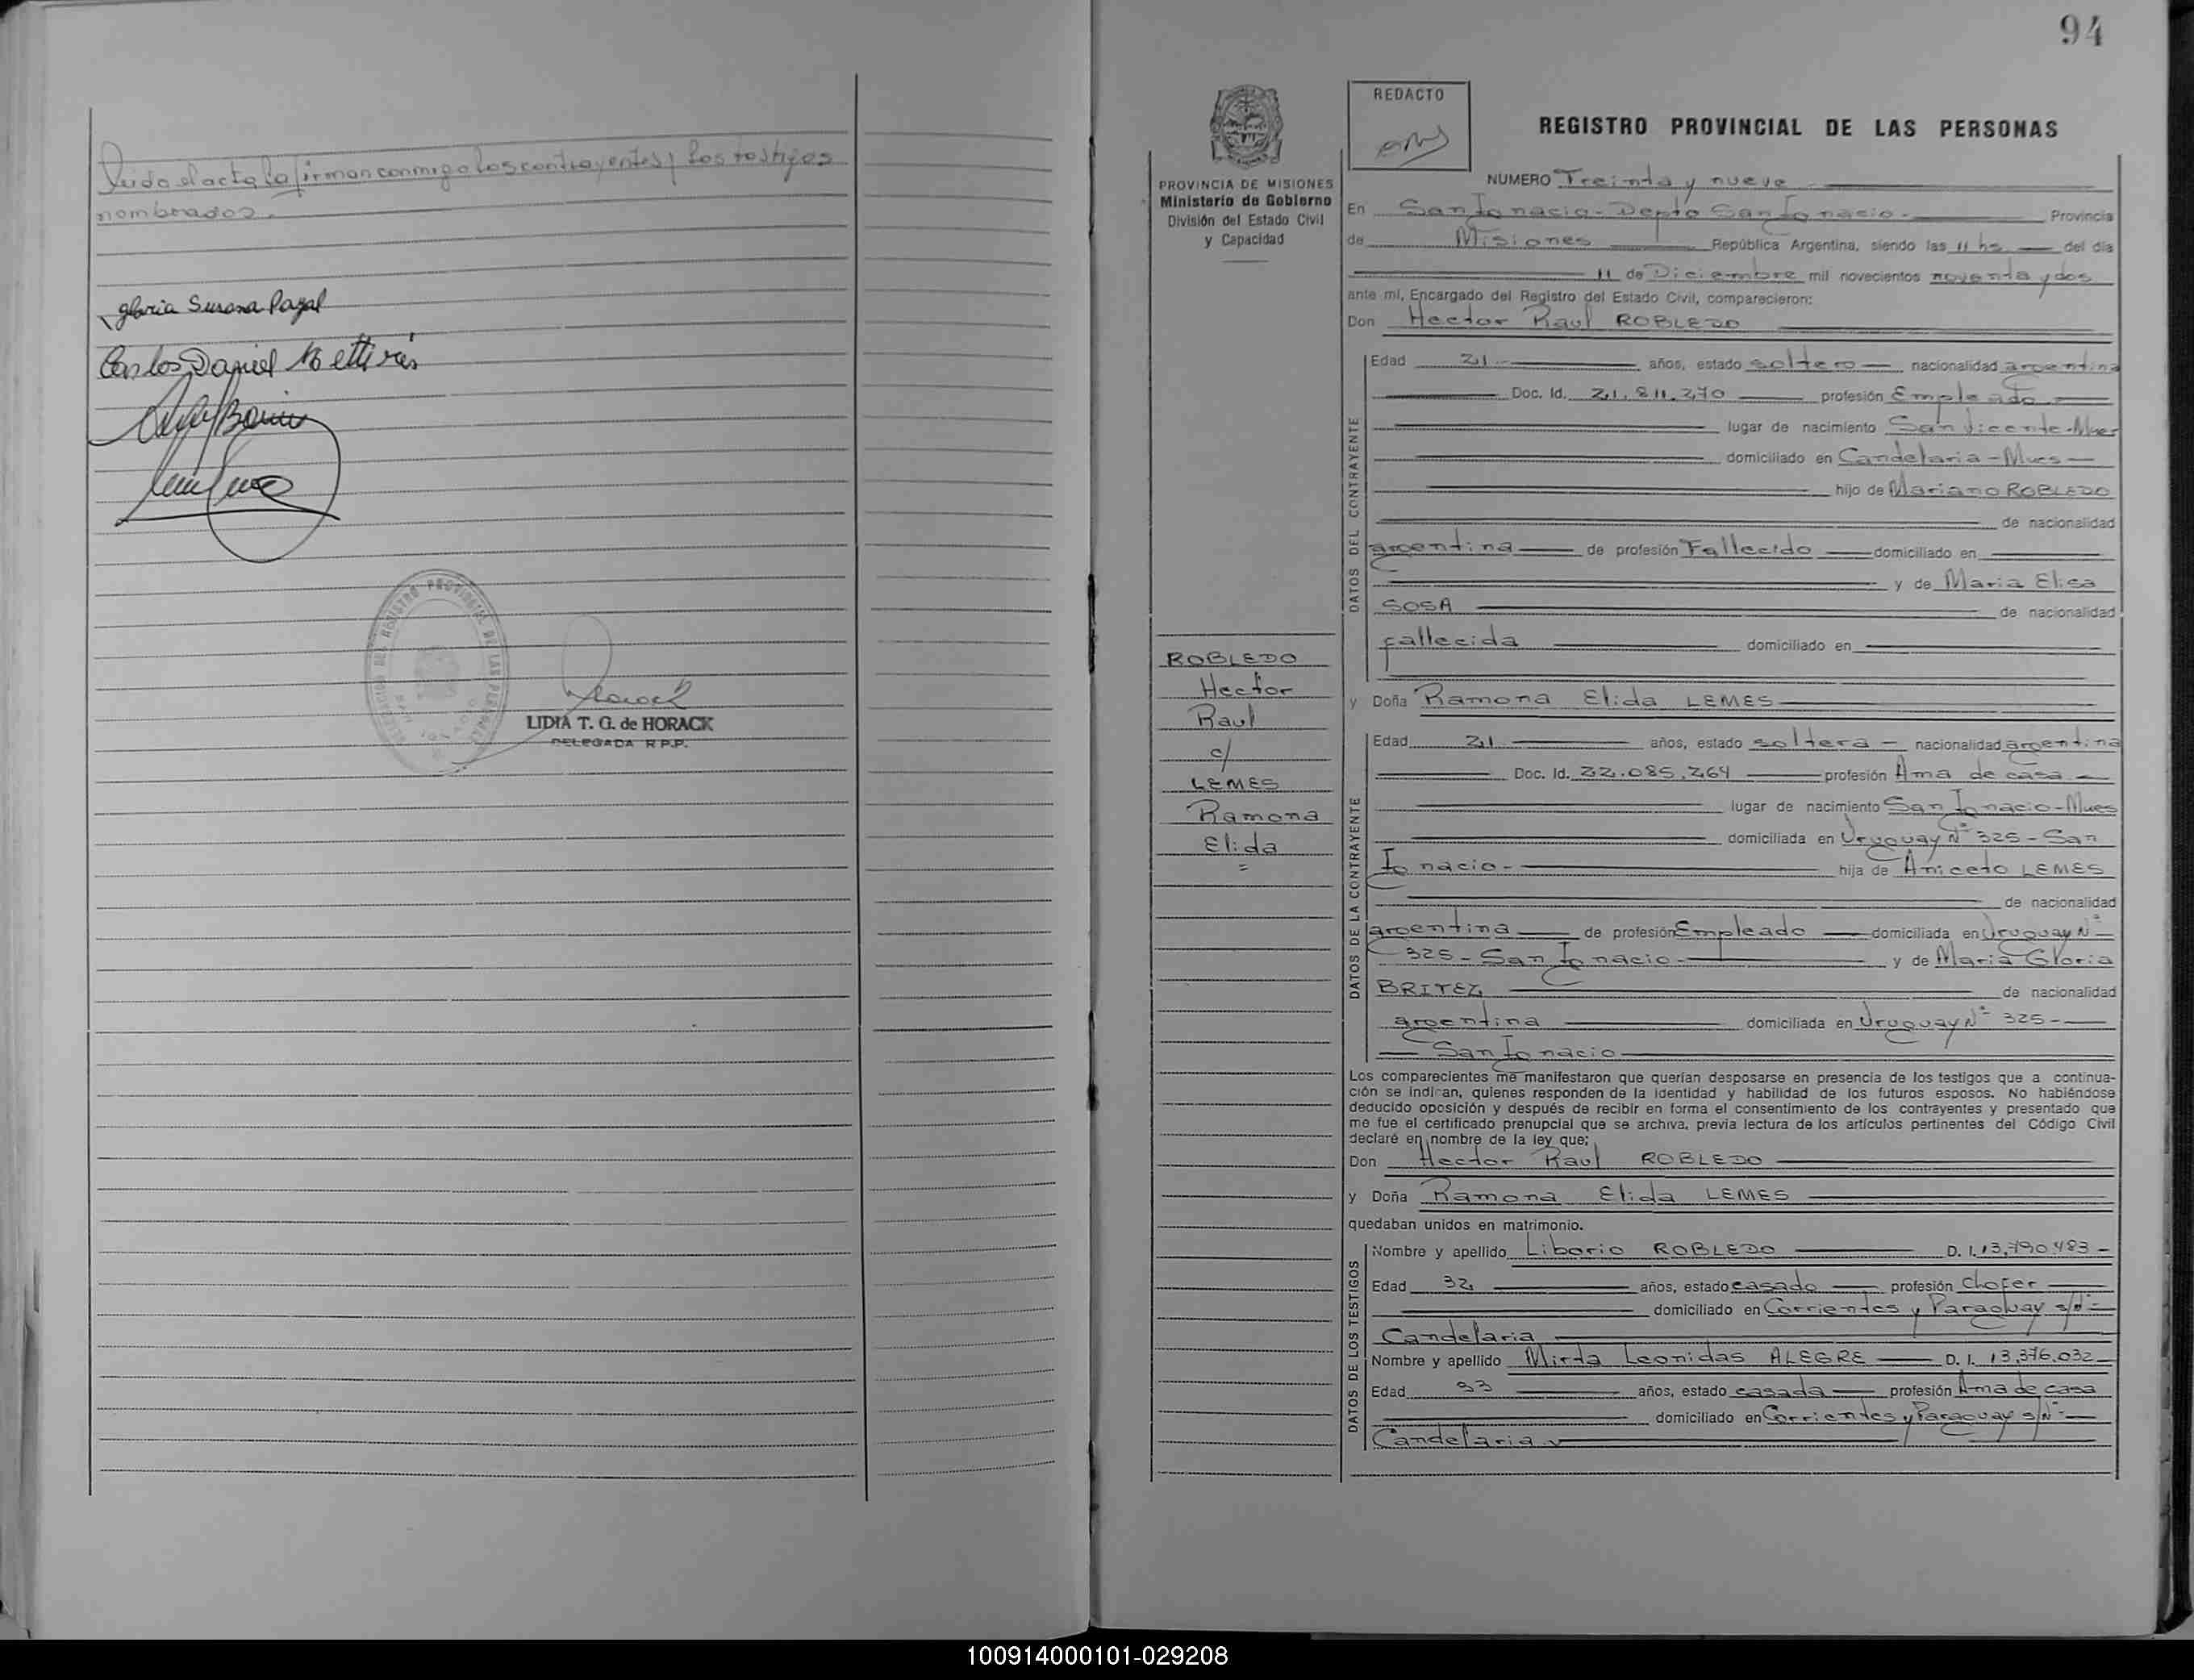 leido el acta la firman conmigo los contrayentes y los testigos
nombrados.
Gloria Susana Pagal
Carlos Daniel
LIDIA T. G. de HORACK
DELEGADA R.P.P.
94
REDACTO
REGISTRO PROVINCIAL DE LAS PERSONAS
PROVINCIA DE MISIONES
Ministerio de Gobierno
División del Estado Civil
y Capacidad
ROBLEDO
Hector
Raul
c/
LEMES
Ramona
Elida
=
NUMERO Treinta y nueve
En San Ignacio - Depto San Ignacio - Provincia
de Misiones República Argentina, siendo las 11 hs del día
11 de Diciembre mil novecientos noventa y dos
ante mí, Encargado del Registro del Estado Civil, comparecieron:
Don Hector Raul ROBLEDO
DATOS DEL CONTRAYENTE
Edad 21 años, estado soltero nacionalidad argentina
Doc. Id. 21.811.270 profesión Empleado
lugar de nacimiento San Vicente-Mnes
domiciliado en Candelaria-Mnes
hijo de Mariano ROBLEDO
de nacionalidad
argentina de profesión Fallecido domiciliado en
y de Maria Elisa
SOSA de nacionalidad
fallecida domiciliado en
y Doña Ramona Elida LEMES
DATOS DE LA CONTRAYENTE
Edad 21 años, estado soltera nacionalidad argentina
Doc. Id. 22.085.264 profesión Ama de casa
lugar de nacimiento San Ignacio-Mnes
domiciliada en Uruguay Nº 325 - San
Ignacio - hija de Aniceto LEMES
de nacionalidad
argentina de profesión Empleado domiciliada en Uruguay Nº
325 - San Ignacio - y de Maria Gloria
BRITEZ de nacionalidad
argentina domiciliada en Uruguay Nº 325 -
San Ignacio
Los comparecientes me manifestaron que querían desposarse en presencia de los testigos que a continua-
ción se indican, quienes responden de la identidad y habilidad de los futuros esposos. No habiéndose
deducido oposición y después de recibir en forma el consentimiento de los contrayentes y presentado que
me fue el certificado prenupcial que se archiva, previa lectura de los artículos pertinentes del Código Civil
declaré en nombre de la ley que:
Don Hector Raul ROBLEDO
y Doña Ramona Elida LEMES
quedaban unidos en matrimonio.
DATOS DE LOS TESTIGOS
Nombre y apellido Liborio ROBLEDO D. I. 13.790.483 -
Edad 32 años, estado casado profesión chofer
domiciliado en Corrientes y Paraguay s/nº
Candelaria
Nombre y apellido Mirta Leonidas ALEGRE D. I. 13.376.032
Edad 33 años, estado casada profesión Ama de casa
domiciliado en Corrientes y Paraguay s/Nº
Candelaria
100914000101-029208